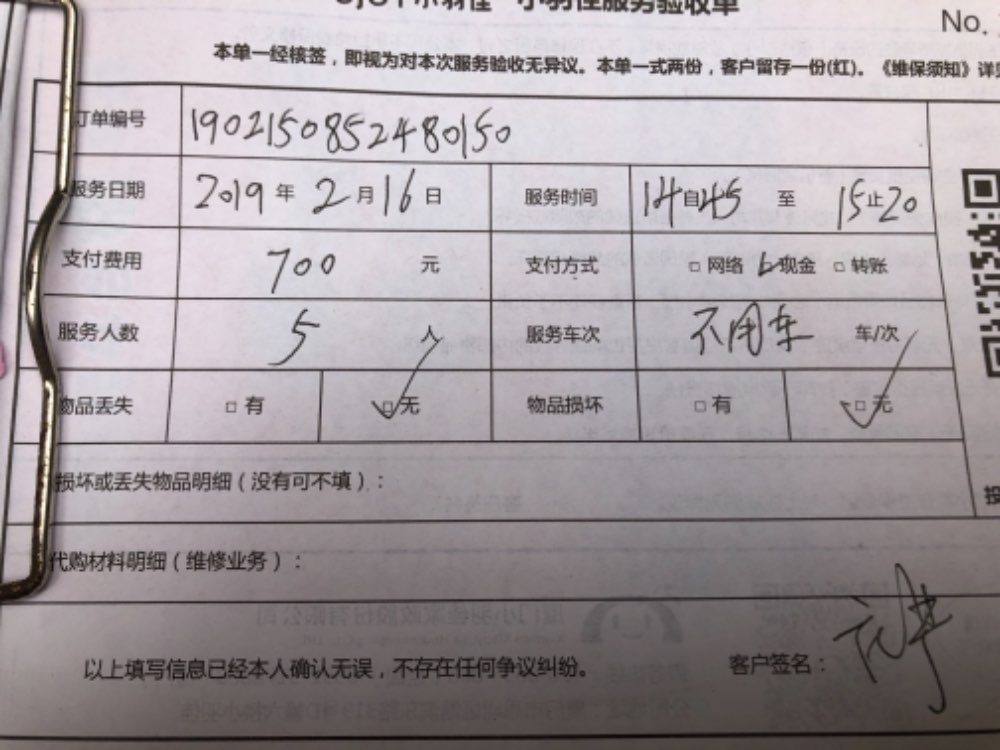 小羽佳服务验收单
No.
本单一经核签，即视为对本次服务验收无异议。本单一式两份，客户留存一份(红)。《维保须知》详见
订单编号 1902150852480150
服务日期 2019 年 2 月 16 日 服务时间 14 自 45 至 15 止 20
支付费用 700 元 支付方式 □ 网络 □ 现金 □ 转账
服务人数 5 人 服务车次 不用车 车/次
物品丢失 □ 有 □ 无 物品损坏 □ 有 □ 无
损坏或丢失物品明细（没有可不填）：
代购材料明细（维修业务）：
以上填写信息已经本人确认无误，不存在任何争议纠纷。 客户签名：